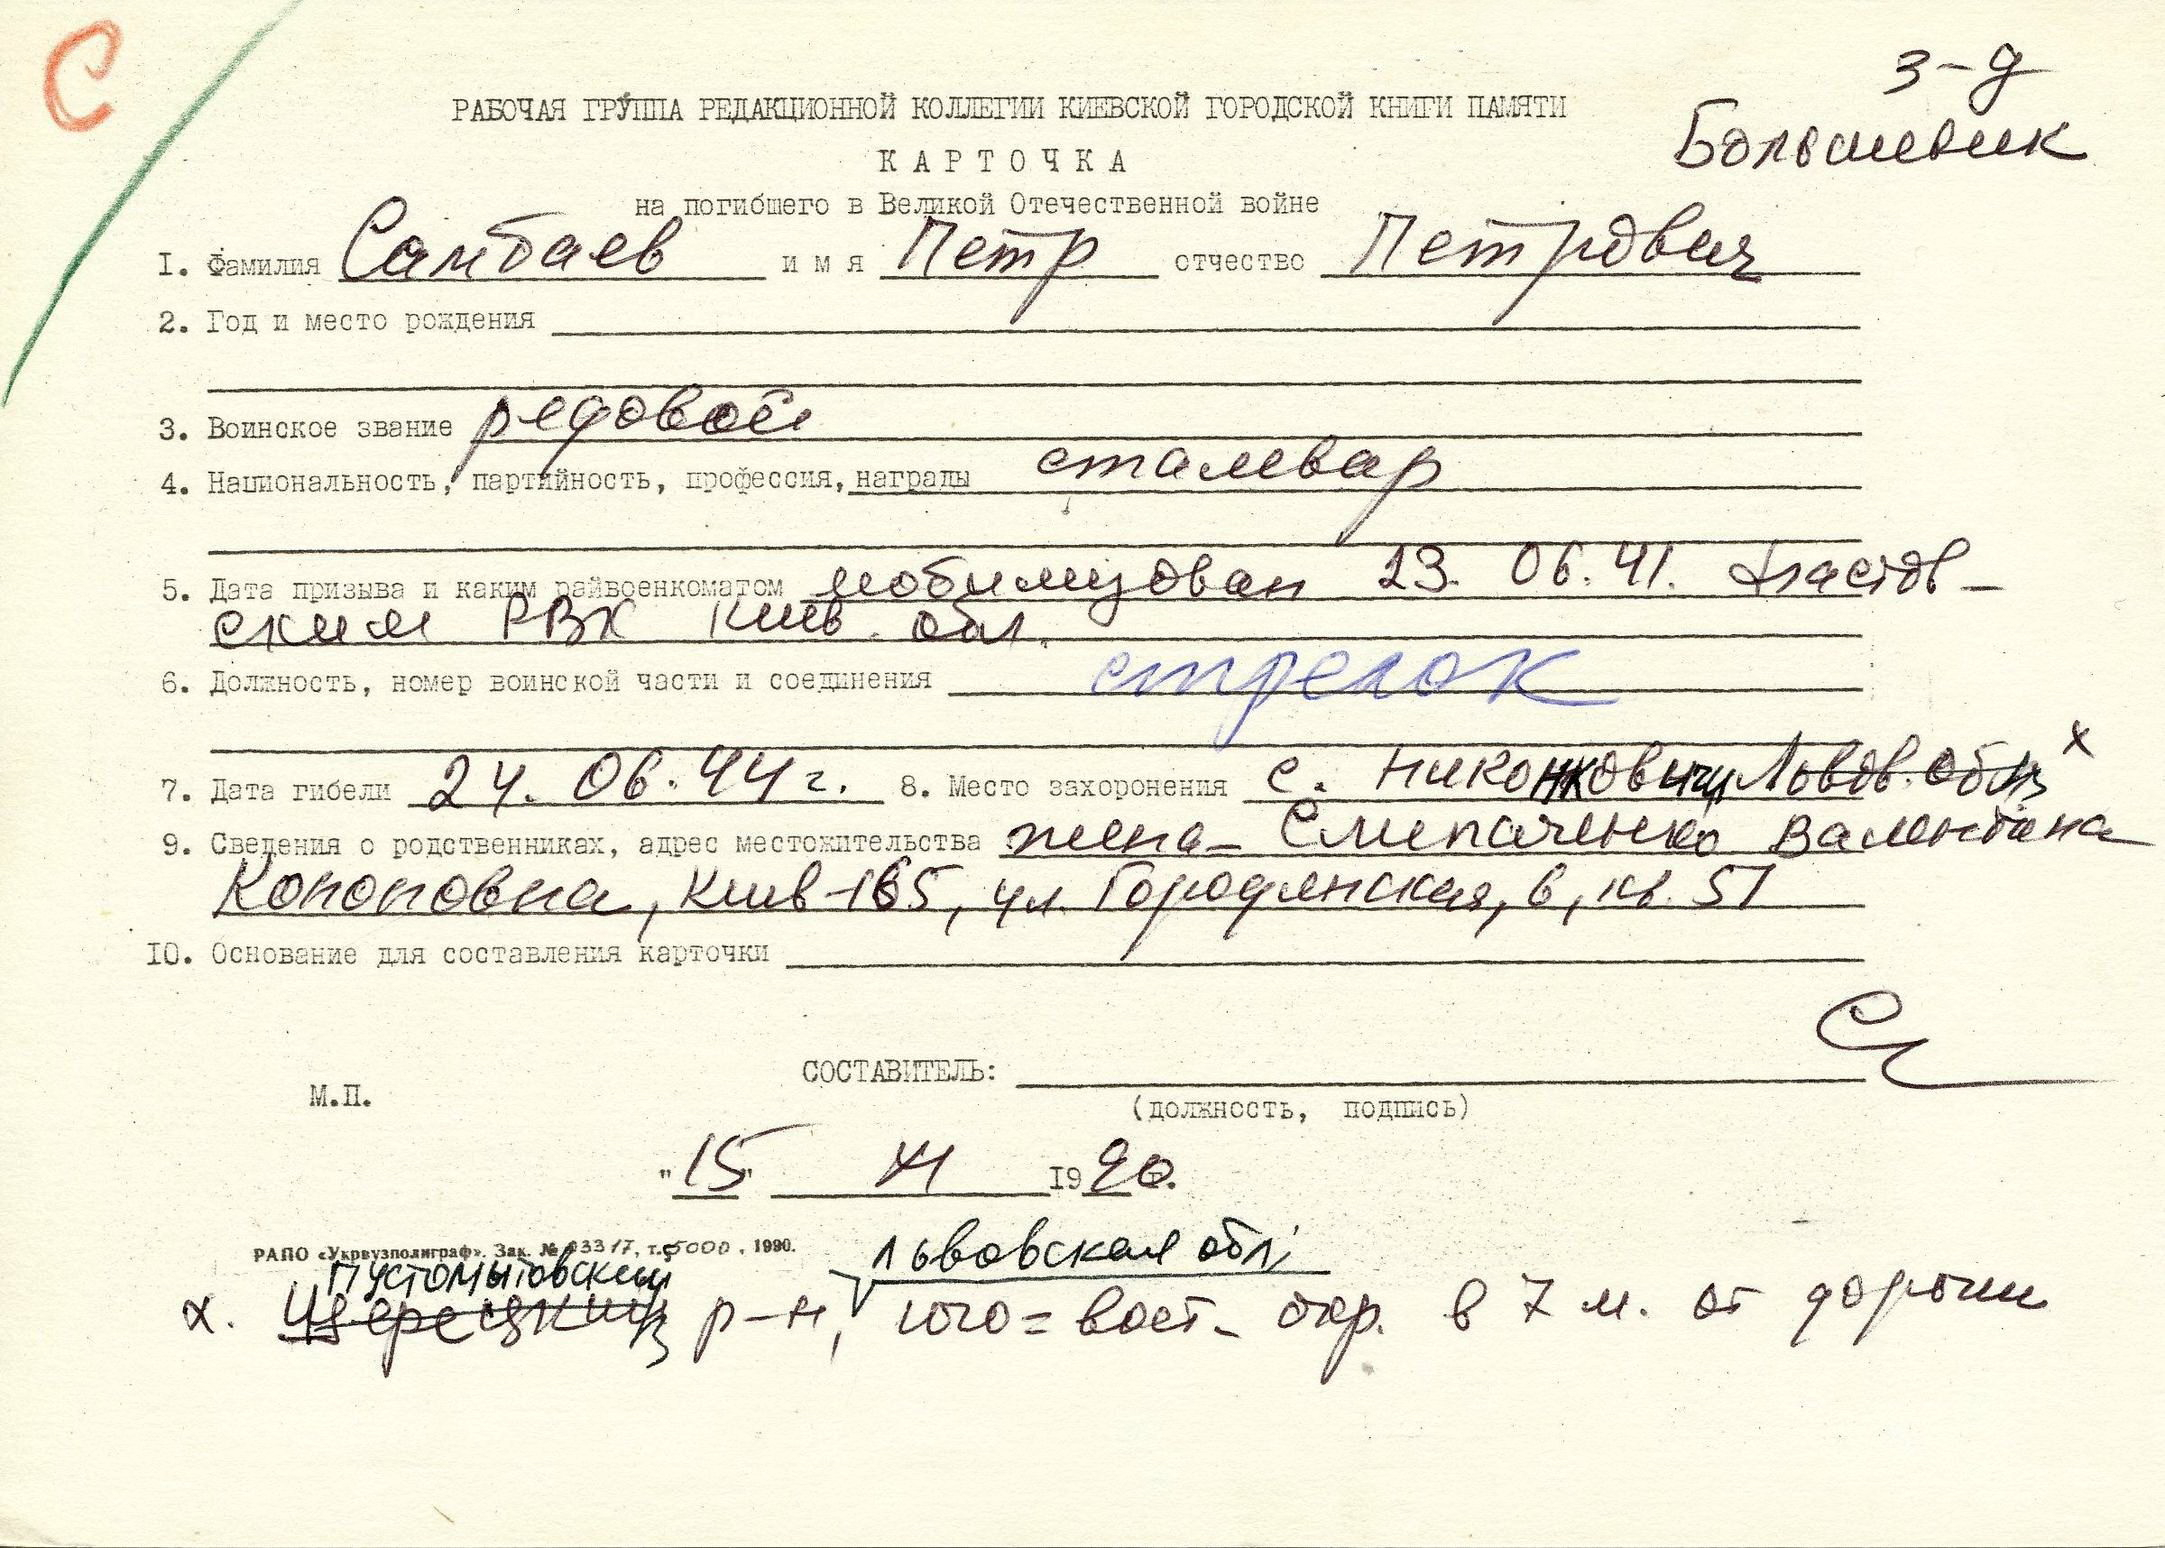 С
з-д
Большевик
РАБОЧАЯ ГРУППА РЕДАКЦИОННОЙ КОЛЛЕГИИ КИЕВСКОЙ ГОРОДСКОЙ КНИГИ ПАМЯТИ
КАРТОЧКА
на погибшего в Великой Отечественной войне
1. Фамилия Самбаев имя Петр отчество Петрович
2. Год и место рождения
3. Воинское звание редовой
4. Национальность, партийность, профессия, награды сталевар
5. Дата призыва и каким райвоенкоматом мобилизован 23. 06. 41. Фастов-
ским РВК Киев. обл.
6. Должность, номер воинской части и соединения стрелок
7. Дата гибели 24. 06. 44 г. 8. Место захоронения с. Никонковичи Львов. обл x
9. Сведения о родственниках, адрес местожительства жена - Слипаченко Валентина
Кононовна, Киев-165, ул. Городянская, 6, кв. 51
10. Основание для составления карточки
СОСТАВИТЕЛЬ:
М.П.
(должность, подпись)
"15" XI 1990.
РАПО «Укрвузполиграф». Зак. № 03317, т. 5000, 1990.
Львовская обл,
Пустомытовский
x. р-н, юго=вост- окр. в 7 м. от дороги